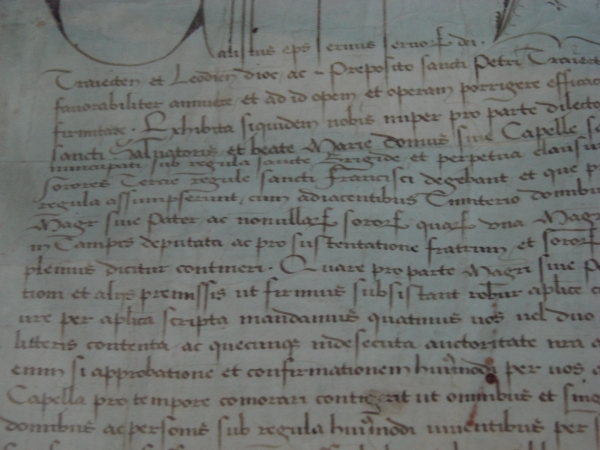 alistus eps servus servoꝝ dei.
Traiecten et Leodien dioc ac Preposito sancti Petri Traiect
favorabiliter annuere et ad id opem et operam porrigere efficac
firmitate. Exhibita siquidem nobis nuper pro parte dilecto
sancti Salvatoris et beate Marie domus sive Capelle se
nuncupati sub regula sancte Brigide et perpetua clausur
sorores Tercie regule sancti Francisci degebant et que p
regula assumpserunt, cum adiacentibus Cimiterio domibu
Magr sive Pater ac nonullaꝝ soroꝝ quaꝝ una Magr
in Campis deputata ac pro sustentatione fratrum et soroꝝ
plenius dicitur contineri. Quare pro parte Magri sive P
tiom et alijs premissis ut firmius subsistant robur aplice c
ure per aplica scripta mandamus quatinus vos vel duo
litteris contenta ac quecunqꝫ indesecuta auctoritate nra a
enim si approbatione et confirmationem huiusmodi per vos a
Capella pro tempore comorari contigerit ut omnibus et sing
domibus ac personis sub regula huiusmodi viventibus per s